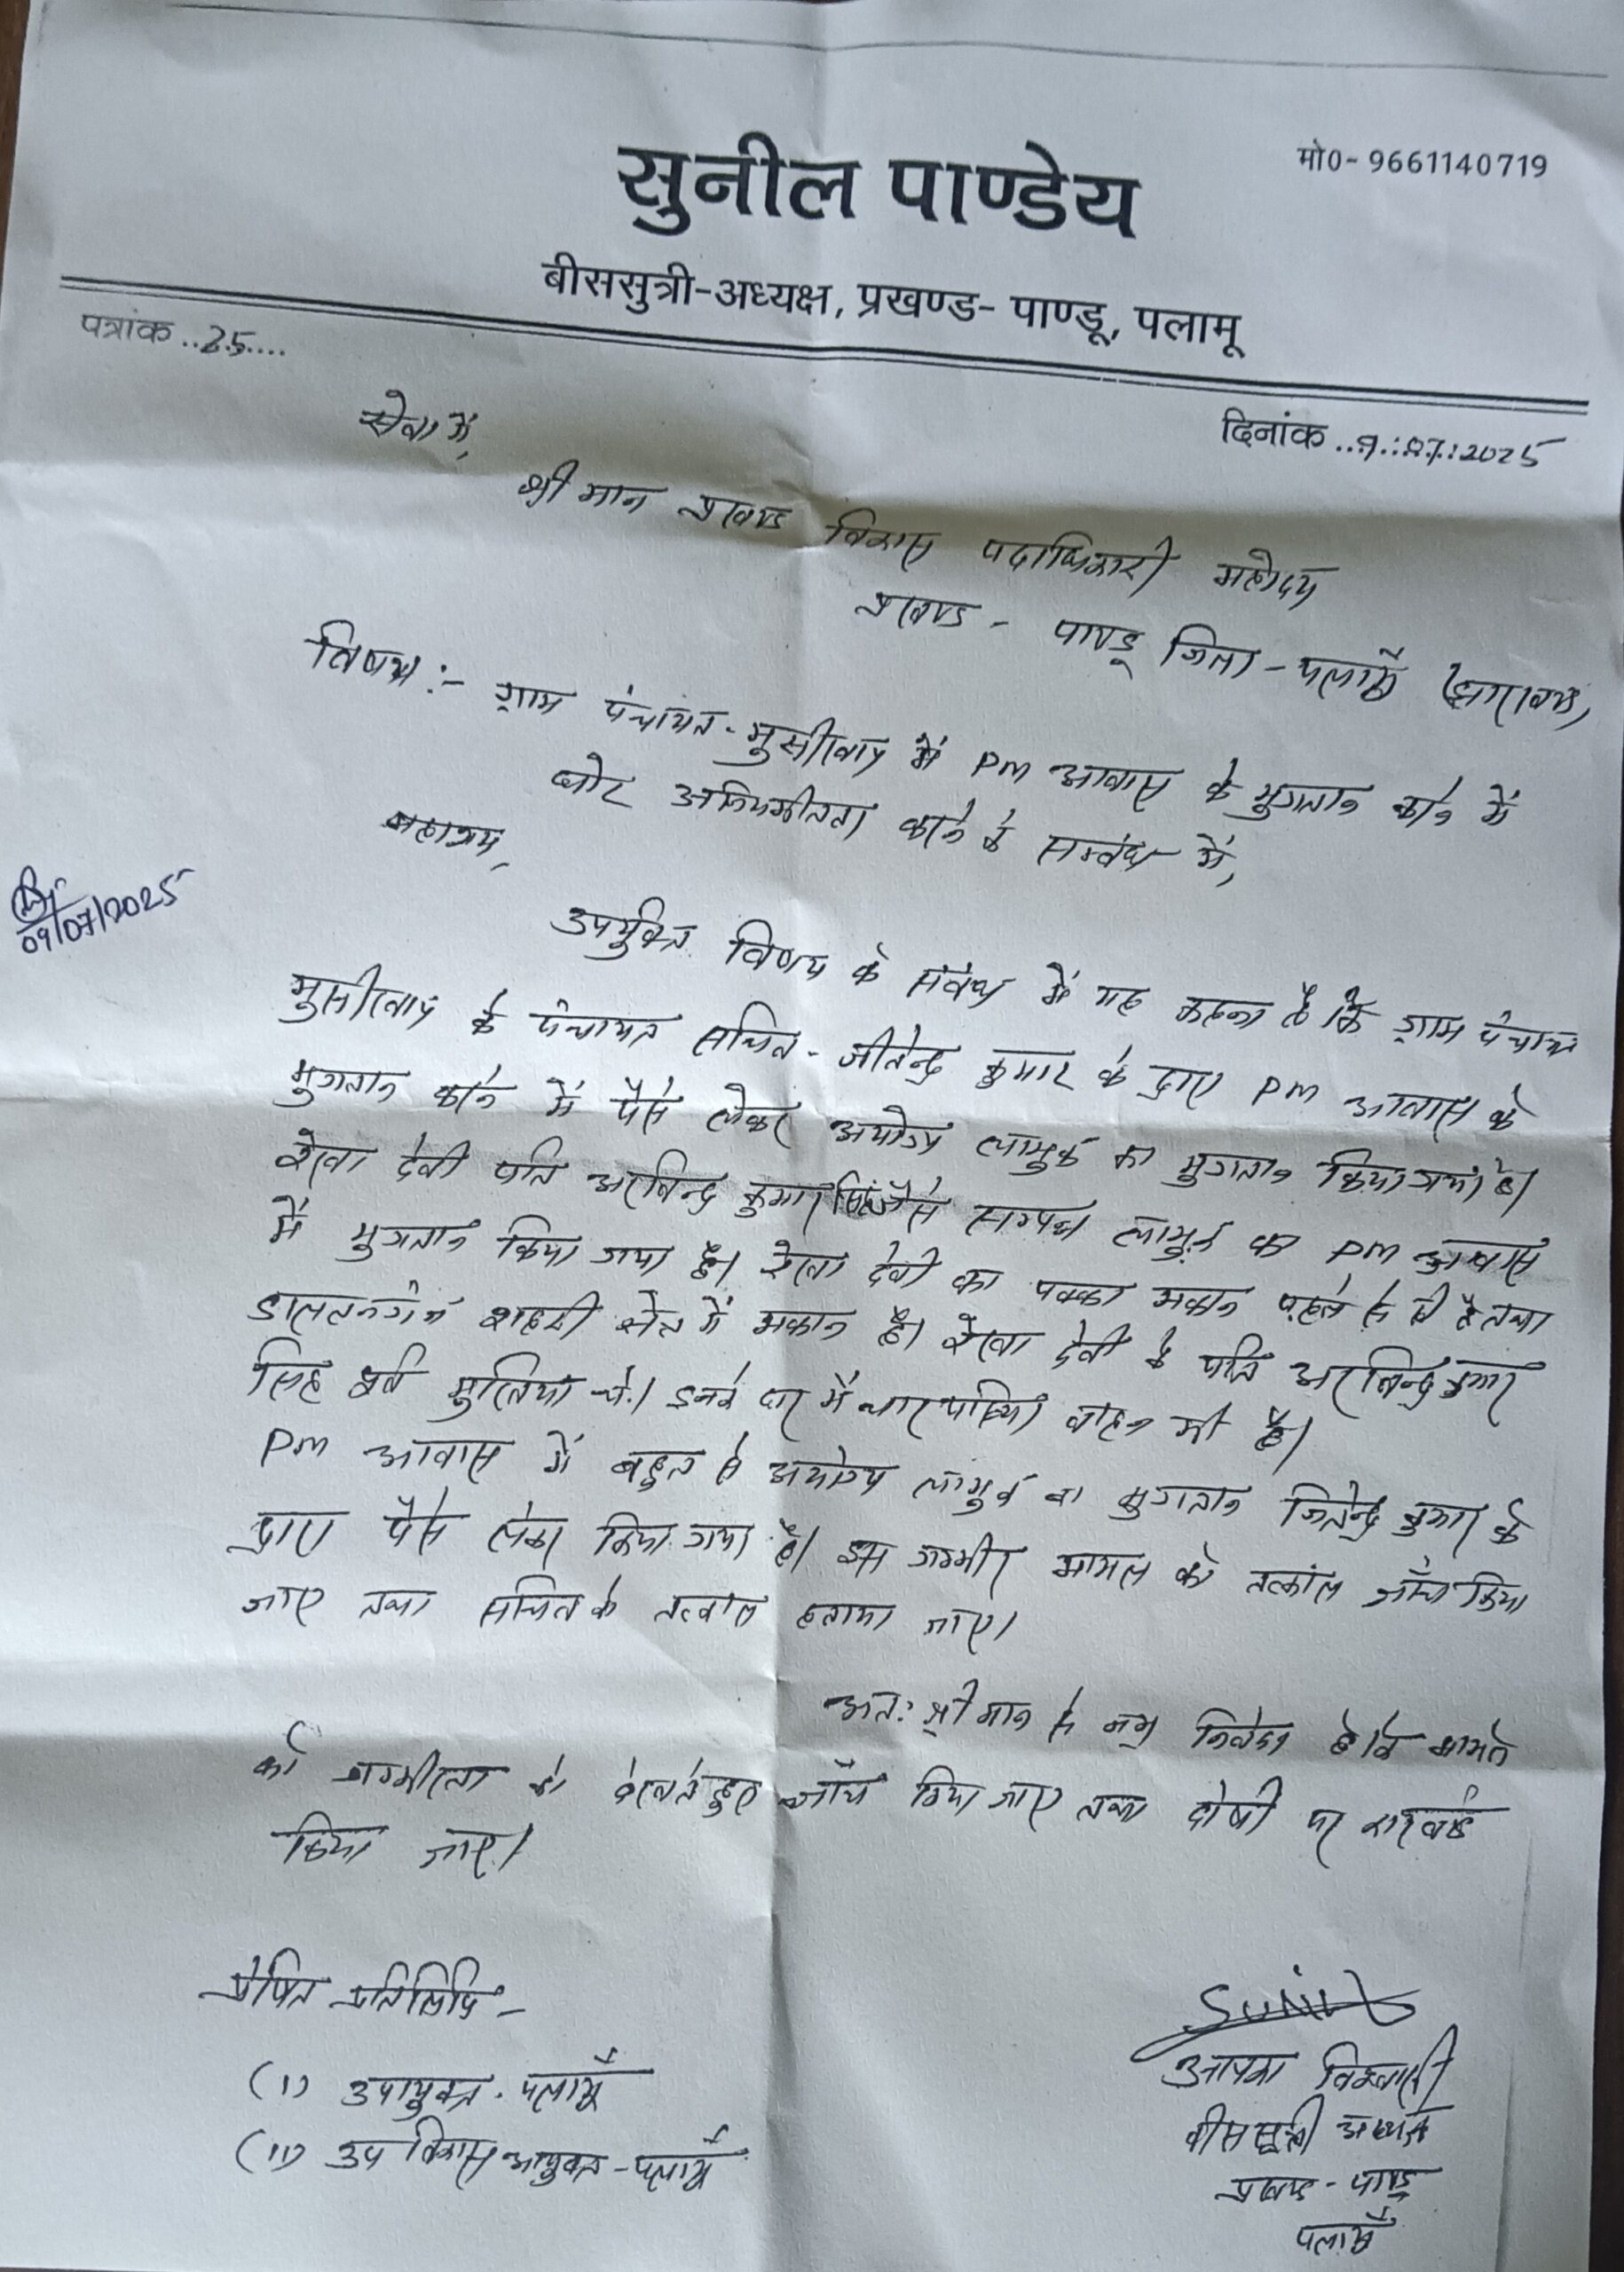 सुनील पाण्डेय
मो0- 9661140719
बीससुत्री-अध्यक्ष, प्रखण्ड- पाण्डू, पलामू
पत्रांक ..25....
दिनांक ..9.:07.:2025
सेवा में,
श्री मान प्रखण्ड विकास पदाधिकारी महोदय
प्रखण्ड - पाण्डू जिला - पलामूँ (झारखण्ड)
विषय :- ग्राम पंचायत - मुसीखाप में PM आवास के भुगतान करने में
घोर अनियमीतता करने के सम्बंध में,
महाशय,
09/07/2025
उपर्युक्त विषय के संबंध में यह कहना है कि ग्राम पंचायत
मुसीखाप के पंचायत सचिव - जीतेन्द्र कुमार के द्वारा PM आवास के
भुगतान करने में पैसे लेकर अयोग्य लाभुक का भुगतान किया गया है।
रेखा देवी पति अरविन्द्र कुमार सिंह जैसे सम्पन्न लाभुक का PM आवास
में भुगतान किया गया है। रेखा देवी का पक्का मकान पहले से ही है तथा
डालतनगंज शहरी क्षेत्र में मकान है। रेखा देवी के पति अरविन्द्र कुमार
सिंह पूर्व मुखिया थे। इनके घर में चारपहिया वाहन भी है।
PM आवास में बहुत से अयोग्य लाभुक का भुगतान जितेन्द्र कुमार के
द्वारा पैसे लेकर किया गया है। इस गम्भीर मामले को तत्काल जाँच किया
जाए तथा सचिव के तत्काल हटाया जाए।
अतः श्री मान से नम्र निवेदन है कि मामले
की गम्भीरता को देखते हुए जाँच किया जाए तथा दोषी पर कारवाई
किया जाए।
प्रेषित प्रतिलिपि -
(i) उपायुक्त - पलामूँ
(ii) उप विकास आयुक्त - पलामूँ
Sunil
आपका विश्वासी
बीससूत्री अध्यक्ष
प्रखण्ड - पाण्डू
पलामूँ